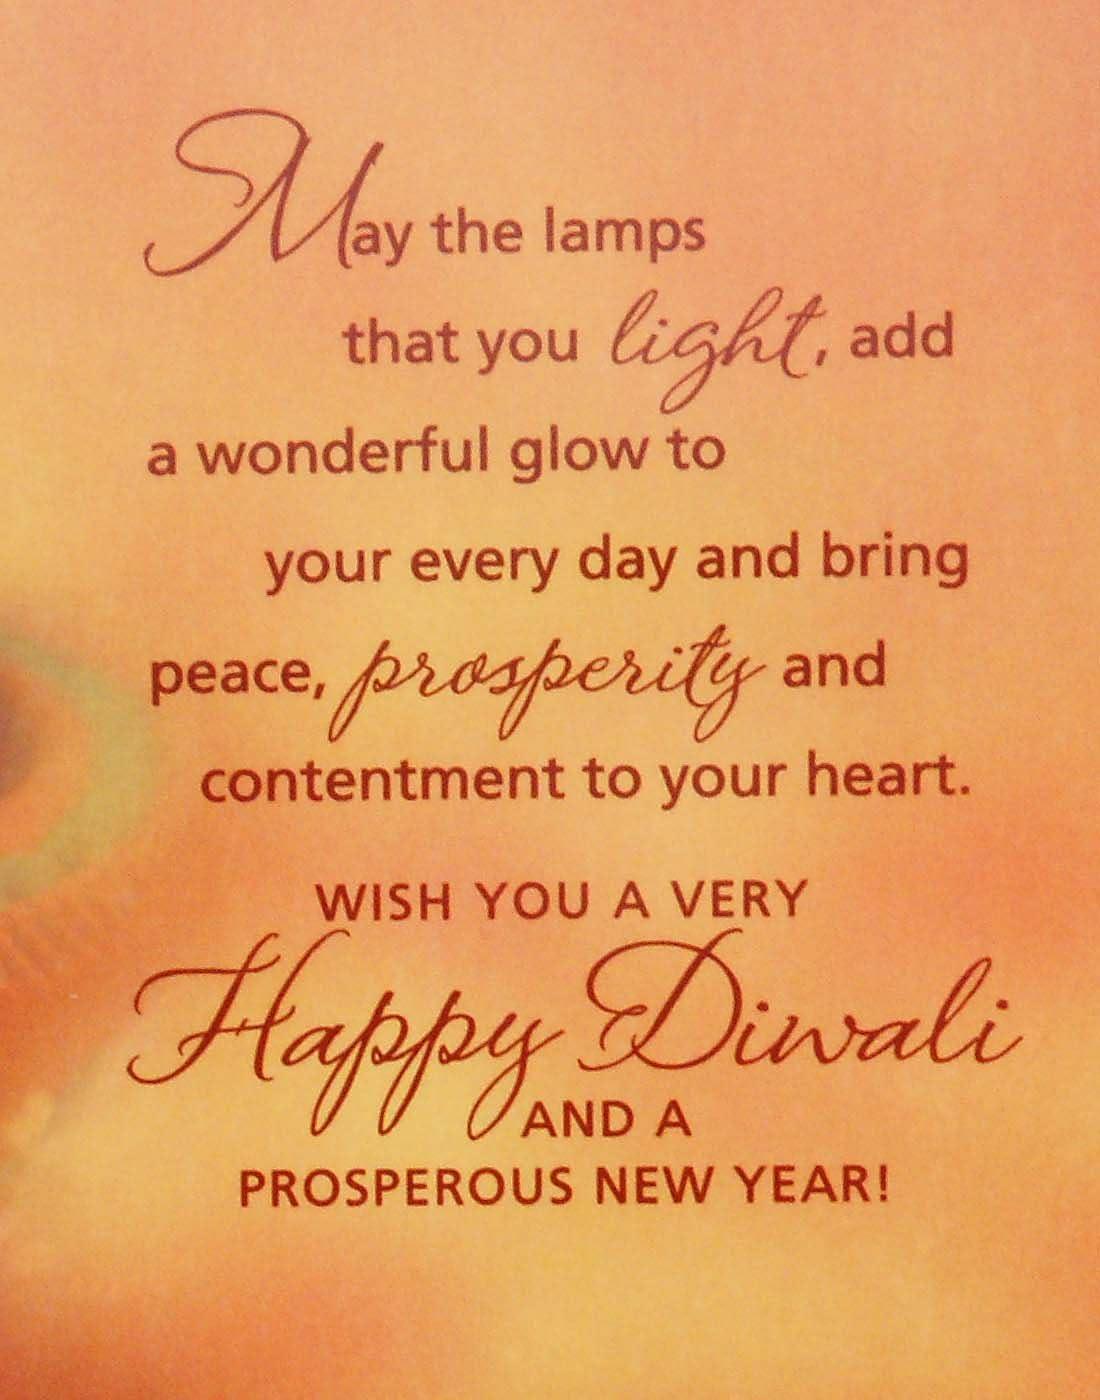 May the lamps
that you light, add
a wonderful glow to
your every day and bring
peace, prosperity and
contentment to your heart.
WISH YOU A VERY
Happy Diwali
AND A
PROSPEROUS NEW YEAR!